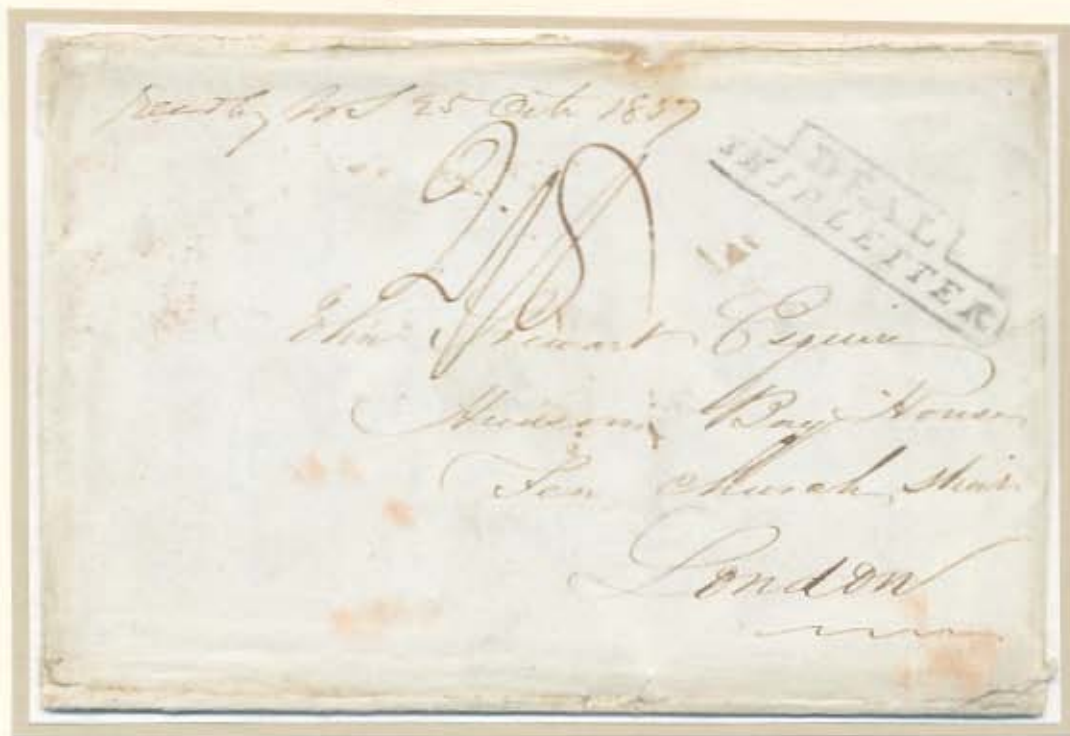 25 Octr 1837
2/8
DEAL
SHIP LETTER
Stewart Esquire
Hudsons Bay House
Fen church Street
London